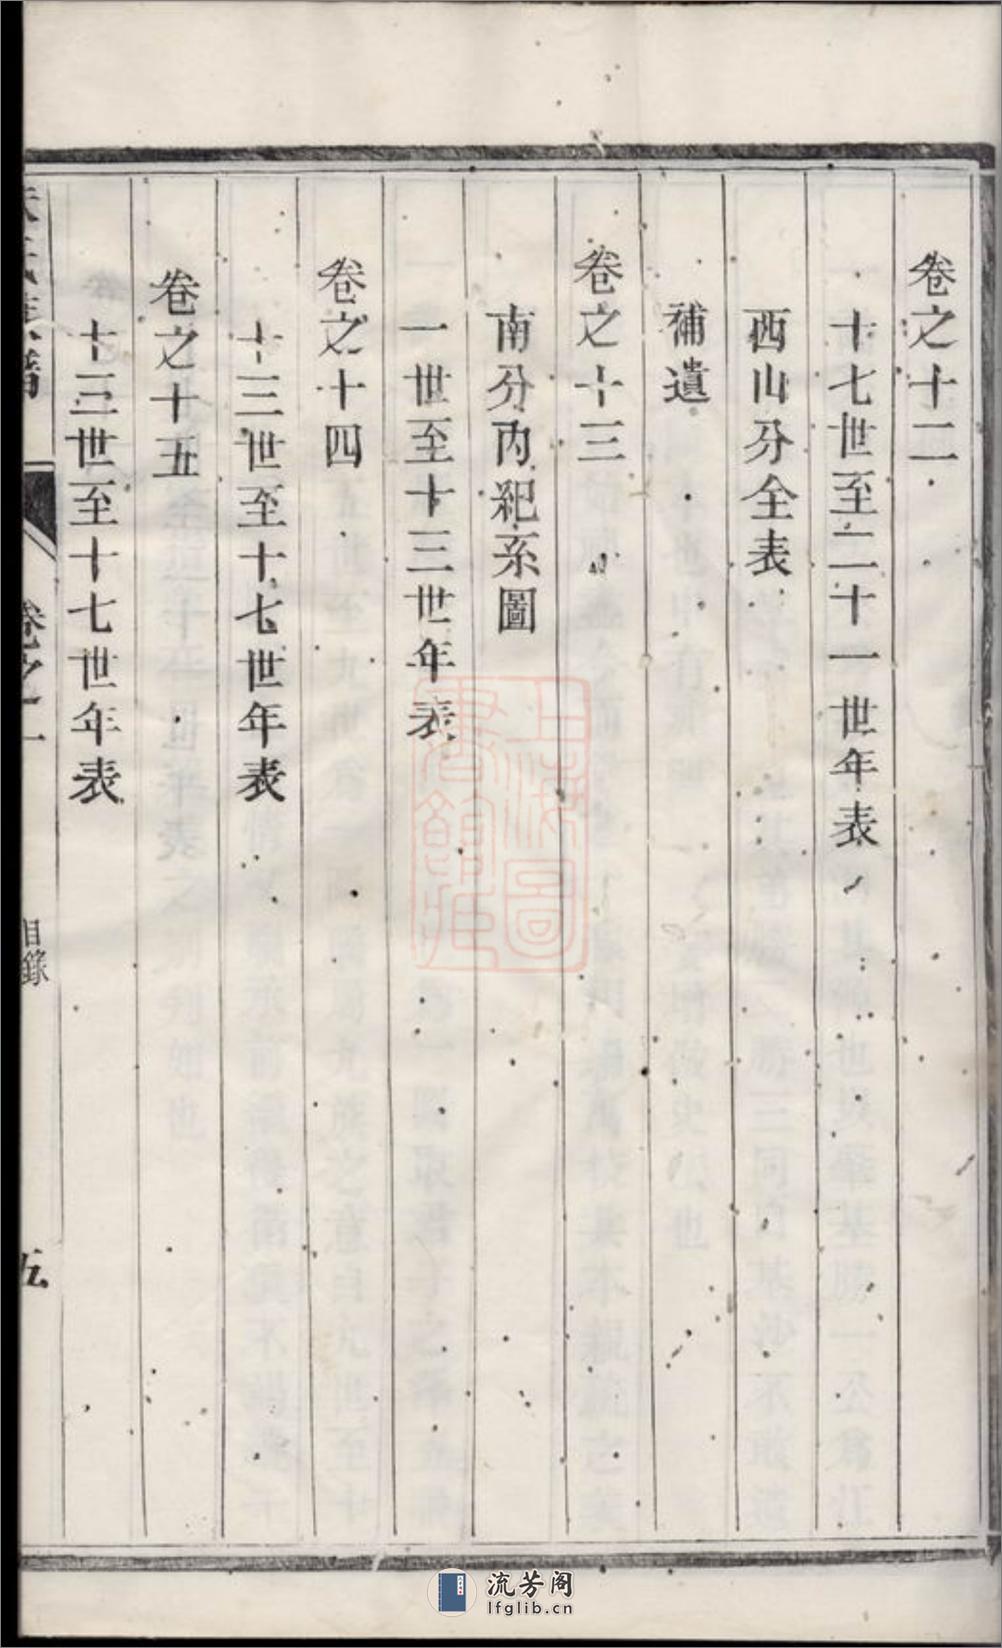 卷之十二
十七世至二十一世年表
西山分全表
補遺
卷之十三
南分內紀系圖
一世至十三世年表
卷之十四
十三世至十七世年表
卷之十五
十三世至十七世年表
氏族譜
卷之一
目錄
五
上海圖書館藏
流芳阁
lfglib.cn